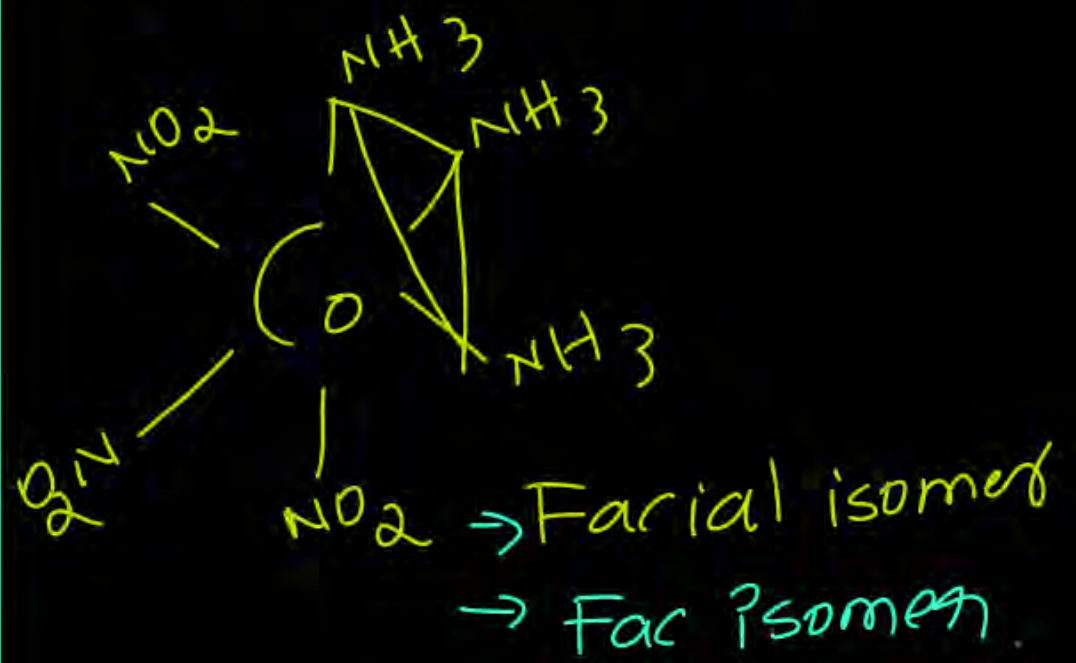 NH3
NO2
NH3
CO
NH3
O2N
NO2
→ Facial isomer
→ Fac isomer